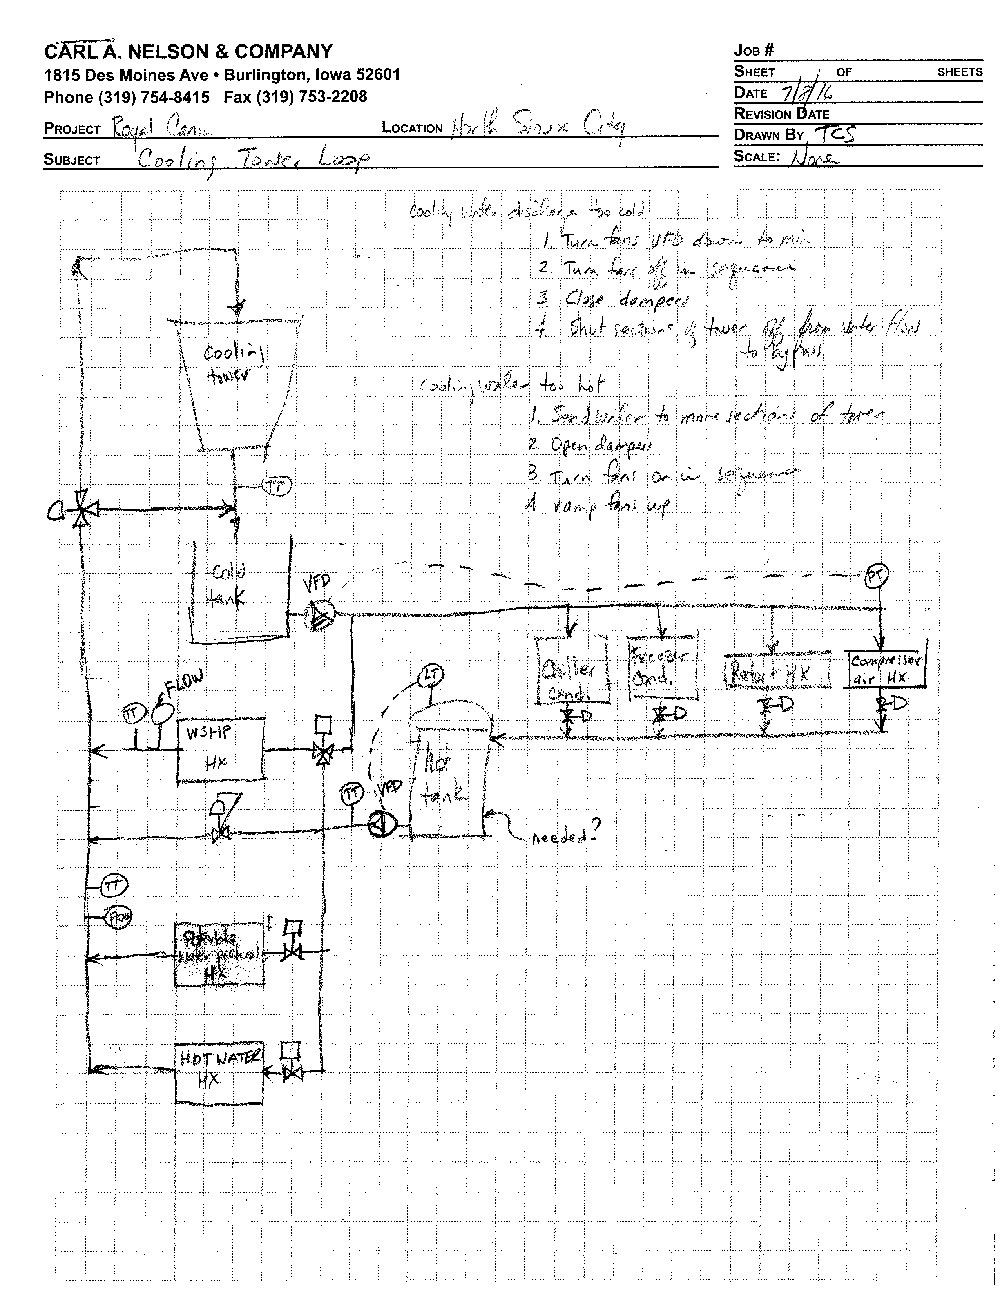 CARL A. NELSON & COMPANY
1815 Des Moines Ave • Burlington, Iowa 52601
Phone (319) 754-8415 Fax (319) 753-2208
PROJECT Royal Canin LOCATION North Sioux City
SUBJECT Cooling Tower Loop
JOB #
SHEET 1 OF SHEETS
DATE 7/8/16
REVISION DATE
DRAWN BY TCS
SCALE: None
Cooling water discharge too cold
1. Turn fans VFD down to min
2. Turn fans off in sequence
3 Close dampers
4. Shut sections of tower off from water flow
to bypass
Cooling water too hot
1. Send water to more sections of tower
2 Open dampers
3 Turn fans on in sequence
4 ramp fans up
Cooling
tower
TT
Cold
tank
VFD
PT
Chiller
Cond.
Freezer
Cond.
HX
Compressor
air HX
LT
FLOW
TT
WSHP
HX
Hot
tank
TT
VFD
needed?
TT
Flow
Potable
water
HX
HOT WATER
HX